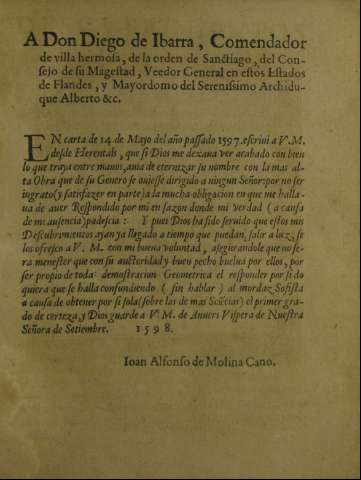 A Don Diego de Ibarra, Comendador
de villa hermosa, de la orden de Sanctiago, del Con-
sejo de su Magestad, Veedor General en estos Estados
de Flandes, y Mayordomo del Serenissimo Archidu-
que Alberto &c.
EN carta de 14. de Mayo del año passado 1597. escriui a V. M.
desde Herentals, que si Dios me dexaua ver acabado con bien
lo que traya entre manos, auia de eternizar su nombre con la mas al-
ta Obra que de su Genero se ouiesse dirigido a ningun Señor: por no ser
ingrato (y satisfazer en parte) a la mucha obligacion en que me halla-
ua de auer Respondido por mi en sazon donde mi verdad (a causa
de mi ausencia) padescia: Y pues Dios ha sido seruido que estos mis
Descubrimientos ayan ya llegado a tiempo que puedan, salir a luz, se
los ofresco a V. M. con mi buena voluntad, asegurandole que no se-
ra menester que con su auctoridad y buen pecho buelua por ellos, por
ser propio de toda demostracion Geometrica el responder por si do
quiera que se halla confundiendo (sin hablar) al mordaz Sofista
a causa de obtener por si sola (sobre las de mas Sciẽcias) el primer gra-
do de certeza, y Dios guarde a V. M. de Anuers Vispera de Nuestra
Señora de Setiembre. 1598.
Ioan Alfonso de Molina Cano.